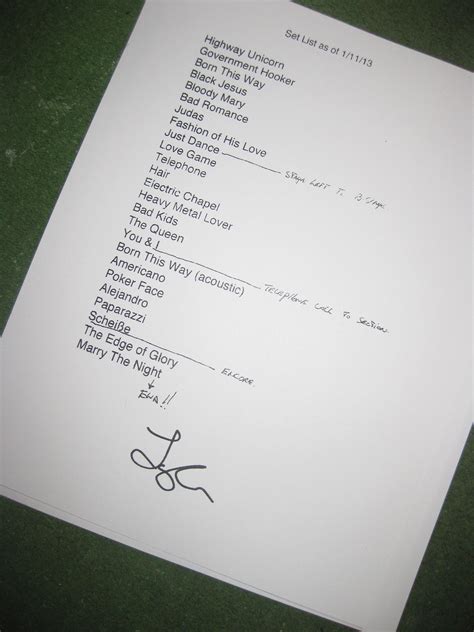 Set List as of 1/11/13
Highway Unicorn
Government Hooker
Born This Way
Black Jesus
Bloody Mary
Bad Romance
Judas
Fashion of His Love
Just Dance
Love Game
Telephone
Hair
Electric Chapel
Heavy Metal Lover
Bad Kids
The Queen
You & I
Born This Way (acoustic) TELEPHONE CALL TO SECTION
Americano
Poker Face
Alejandro
Paparazzi
Scheiße
The Edge of Glory ENCORE.
Marry The Night